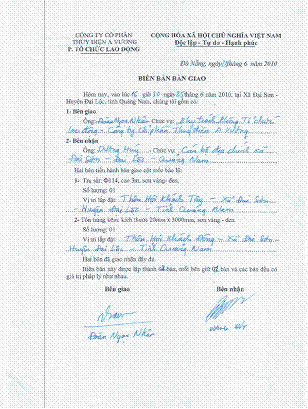 CÔNG TY CỔ PHẦN CỘNG HÒA XÃ HỘI CHỦ NGHĨA VIỆT NAM
THỦY ĐIỆN A VƯƠNG Độc lập - Tự do - Hạnh phúc
P. TỔ CHỨC LAO ĐỘNG
Đà Nẵng, ngày tháng 6 năm 2010
BIÊN BẢN BÀN GIAO
Hôm nay, vào lúc 16 giờ 30 ngày /6 năm 2010, tại Xã Đại Sơn -
Huyện Đại Lộc, tỉnh Quảng Nam, chúng tôi gồm có:
1- Bên giao
Ông: Đoàn Ngọc Nhân Chức vụ: Phụ trách Phòng Tổ chức
Lao động - Công ty Cổ phần Thủy điện A Vương
2- Bên nhận
Ông: Dương Chức vụ: Cán bộ địa chính xã
Đại Sơn - Đại Lộc - Quảng Nam
Hai bên tiến hành bàn giao cột mốc báo lũ:
1- Trụ sắt: Φ114, cao 3m, sơn vàng- đen.
Số lượng: 01
Vị trí lắp đặt: Thôn Hội Khách Tây - Xã Đại Sơn -
Huyện Đại Lộc - Tỉnh Quảng Nam
2- Cột bằng kích thước 200mm x 3000mm, sơn vàng - đen.
Số lượng: 01
Vị trí lắp đặt: Thôn Hội Khách Đông - Xã Đại Sơn -
Huyện Đại Lộc - Tỉnh Quảng Nam
Hai bên đã giao nhận đầy đủ.
Biên bản này được lập thành bản, mỗi bên giữ bản và các bản đều có
giá trị pháp lý như nhau.
Bên giao Bên nhận
Đoàn Ngọc Nhân